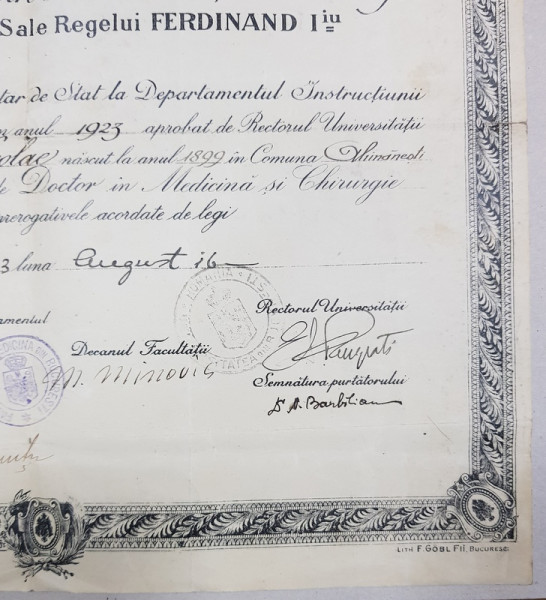 Sale Regelui FERDINAND I iu
tar de Stat la Departamentul Instrucțiunii
anul 1923 aprobat de Rectorul Universității
născut la anul 1899 în Comuna
Doctor în Medicină și Chirurgie
prerogativele acordate de legi
3 luna August 16
Rectorul Universității
Decanul Facultății
M. Minovici
E. Pangrati
Semnătura purtătorului
Dr N. Barbilian
ROMANIA
LITH. F. GÖBL FII, BUCUREȘCI